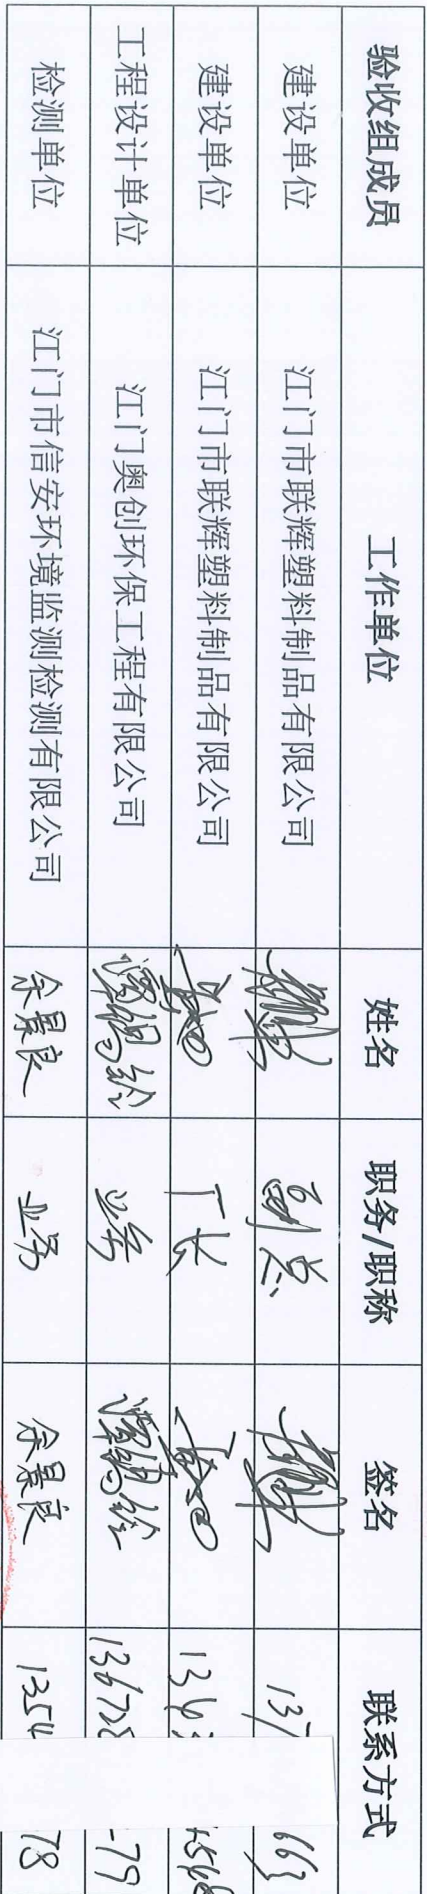 验收组成员 工作单位 姓名 职务/职称 签名 联系方式
建设单位 江门市联辉塑料制品有限公司 副总 137 663
建设单位 江门市联辉塑料制品有限公司 厂长 1363 4568
工程设计单位 江门奥创环保工程有限公司 业务 136728 -79
检测单位 江门市信安环境监测检测有限公司 余景良 业务 余景良 1354 78